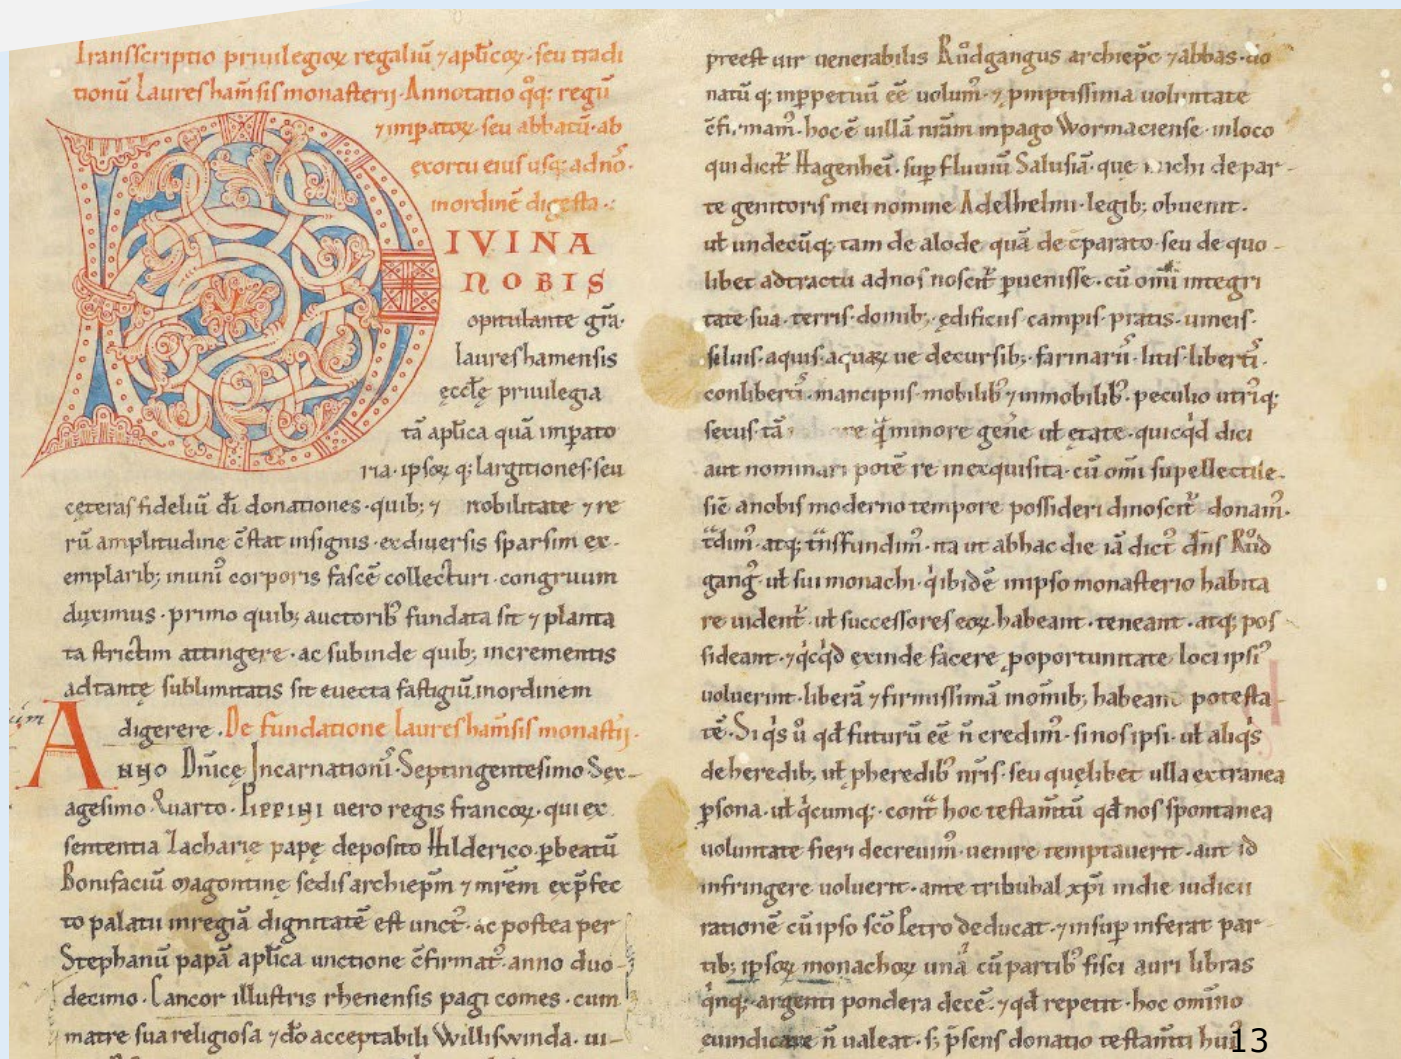 Transscriptio priuilegioꝝ regaliū ⁊ apl̄icoꝝ · seu tradi
tionū Lauresham̄sis monasterij · Annotatio q̊q; regū
⁊ imꝑatoꝝ · seu abbatū · ab
exortu eius usq; ad nō ·
in ordinē digesta .:
DIVINA
NOBIS
opitulante gr̄a ·
laureshamensis
ęccl̄ę priuilegia
tā apl̄ica quā imꝑato
ria · ipsoꝝ q; largitiones · seu
cęteras fideliū dī donationes · quib; ⁊ nobilitate ⁊ re
rū amplitudine c̄stat insignis · ex diuersis sparsim ex ·
emplarib; in uni᷒ corporis fascē collecturi · congruum
duximus · primo quib; auctorib᷒ fundata sit ⁊ planta
ta strictim attingere · ac subinde quib; incrementis
ad tantę sublimitatis sit euecta fastigiū, in ordinem
digerere . De fundatione lauresham̄sis monast̄ij ·
ANNO Dn̄icę Incarnationi᷒ · Septingentesimo Sex-
agesimo Quarto · PIPPINI uero regis francoꝝ · qui ex
sententia Zacharię papę deposito Hilderico · ꝑ beatū
Bonifaciū magontinę sedis archiep̄m ⁊ mr̄em ex p̄fec
to palatii in regiā dignitatē est unct᷒ · ac postea per
Stephanū papā apl̄ica unctione c̄firmat᷒ · anno duo-
decimo · Cancor illustris rhenensis pagi comes · cum
matre sua religiosa ⁊ dō acceptabili Williswinda · ui-
preest uir uenerabilis Růdgangus archiep̄c ⁊ abbas · do
natū q; inꝑpetuū eē uolum᷒ · ⁊ ꝓmptissima uoluntate
c̄firmam᷒ · hoc ē uillā nr̄am in pago Wormaciense · in loco
qui dicit᷑ Hagenheī · suꝑ fluuiū Salusiā · que michi de par-
te genitoris mei nomine Adelhelmi · legib; obuenit ·
ul̄ undecūq; tam de alode quā de c̄parato · seu de quo-
libet adtractu ad nos noscit᷑ ꝑuenisse · cū om̄i integri
tate sua · terris · domib; · ędificiis · campis · pratis · uineis ·
siluis · aquis · aquaꝝ ue decursib; · farinarii᷒ · litis · liberti᷒ ·
conliberti᷒ · mancipiis · mobilib᷒ ⁊ inmobilib᷒ · peculio utriq;
secus tā minore geńe ul̄ ętate · quicq̇d dici
aut nominari potē re inexquisita · cū omi supellectile ·
sic̄ a nobis moderno tempore possideri dinoscit᷑ donam᷒ ·
t̄dim᷒ · atq; t̄nsfundim᷒ · ita ut ab hac die iā dict᷒ dn̄s Růd
gang᷒ · ul̄ sui monachi · q̇ ibidē in ipso monasterio habita
re uident᷑ · ul̄ successores eoꝝ · habeant · teneant · atq; pos
sideant · ⁊ q̇cq̇d exinde facere ꝓ oportunitate loci ipsi᷒
uoluerint · liberā ⁊ firmissimā in om̄ib; habeant potesta
tē · Si q̇s ů qd̄ futurū eē n̄ credim᷒ · si nos ipsi · ul̄ aliq̇s
de heredib; ul̄ ꝓheredib᷒ nr̄is · seu quęlibet ulla extranea
ꝑsona · ul̄ q̇cumq; · cont᷑ hoc testam̄tū qd̄ nos spontanea
uoluntate fieri decreuim᷒ · uenire temptauerit · aut id
infringere uoluerit · ante tribunal xp̄i in die iudicii
rationē cū ipso sc̄o Petro deducat · ⁊ insuꝑ inferat par-
tib; ipsoꝝ monachoꝝ unā cū partib᷒ fisci auri libras
q̇nq; · argenti pondera decē · ⁊ qd̄ repetit · hoc omīno
euindicare n̄ ualeat · s; p̄sens donatio testam̄ti
13